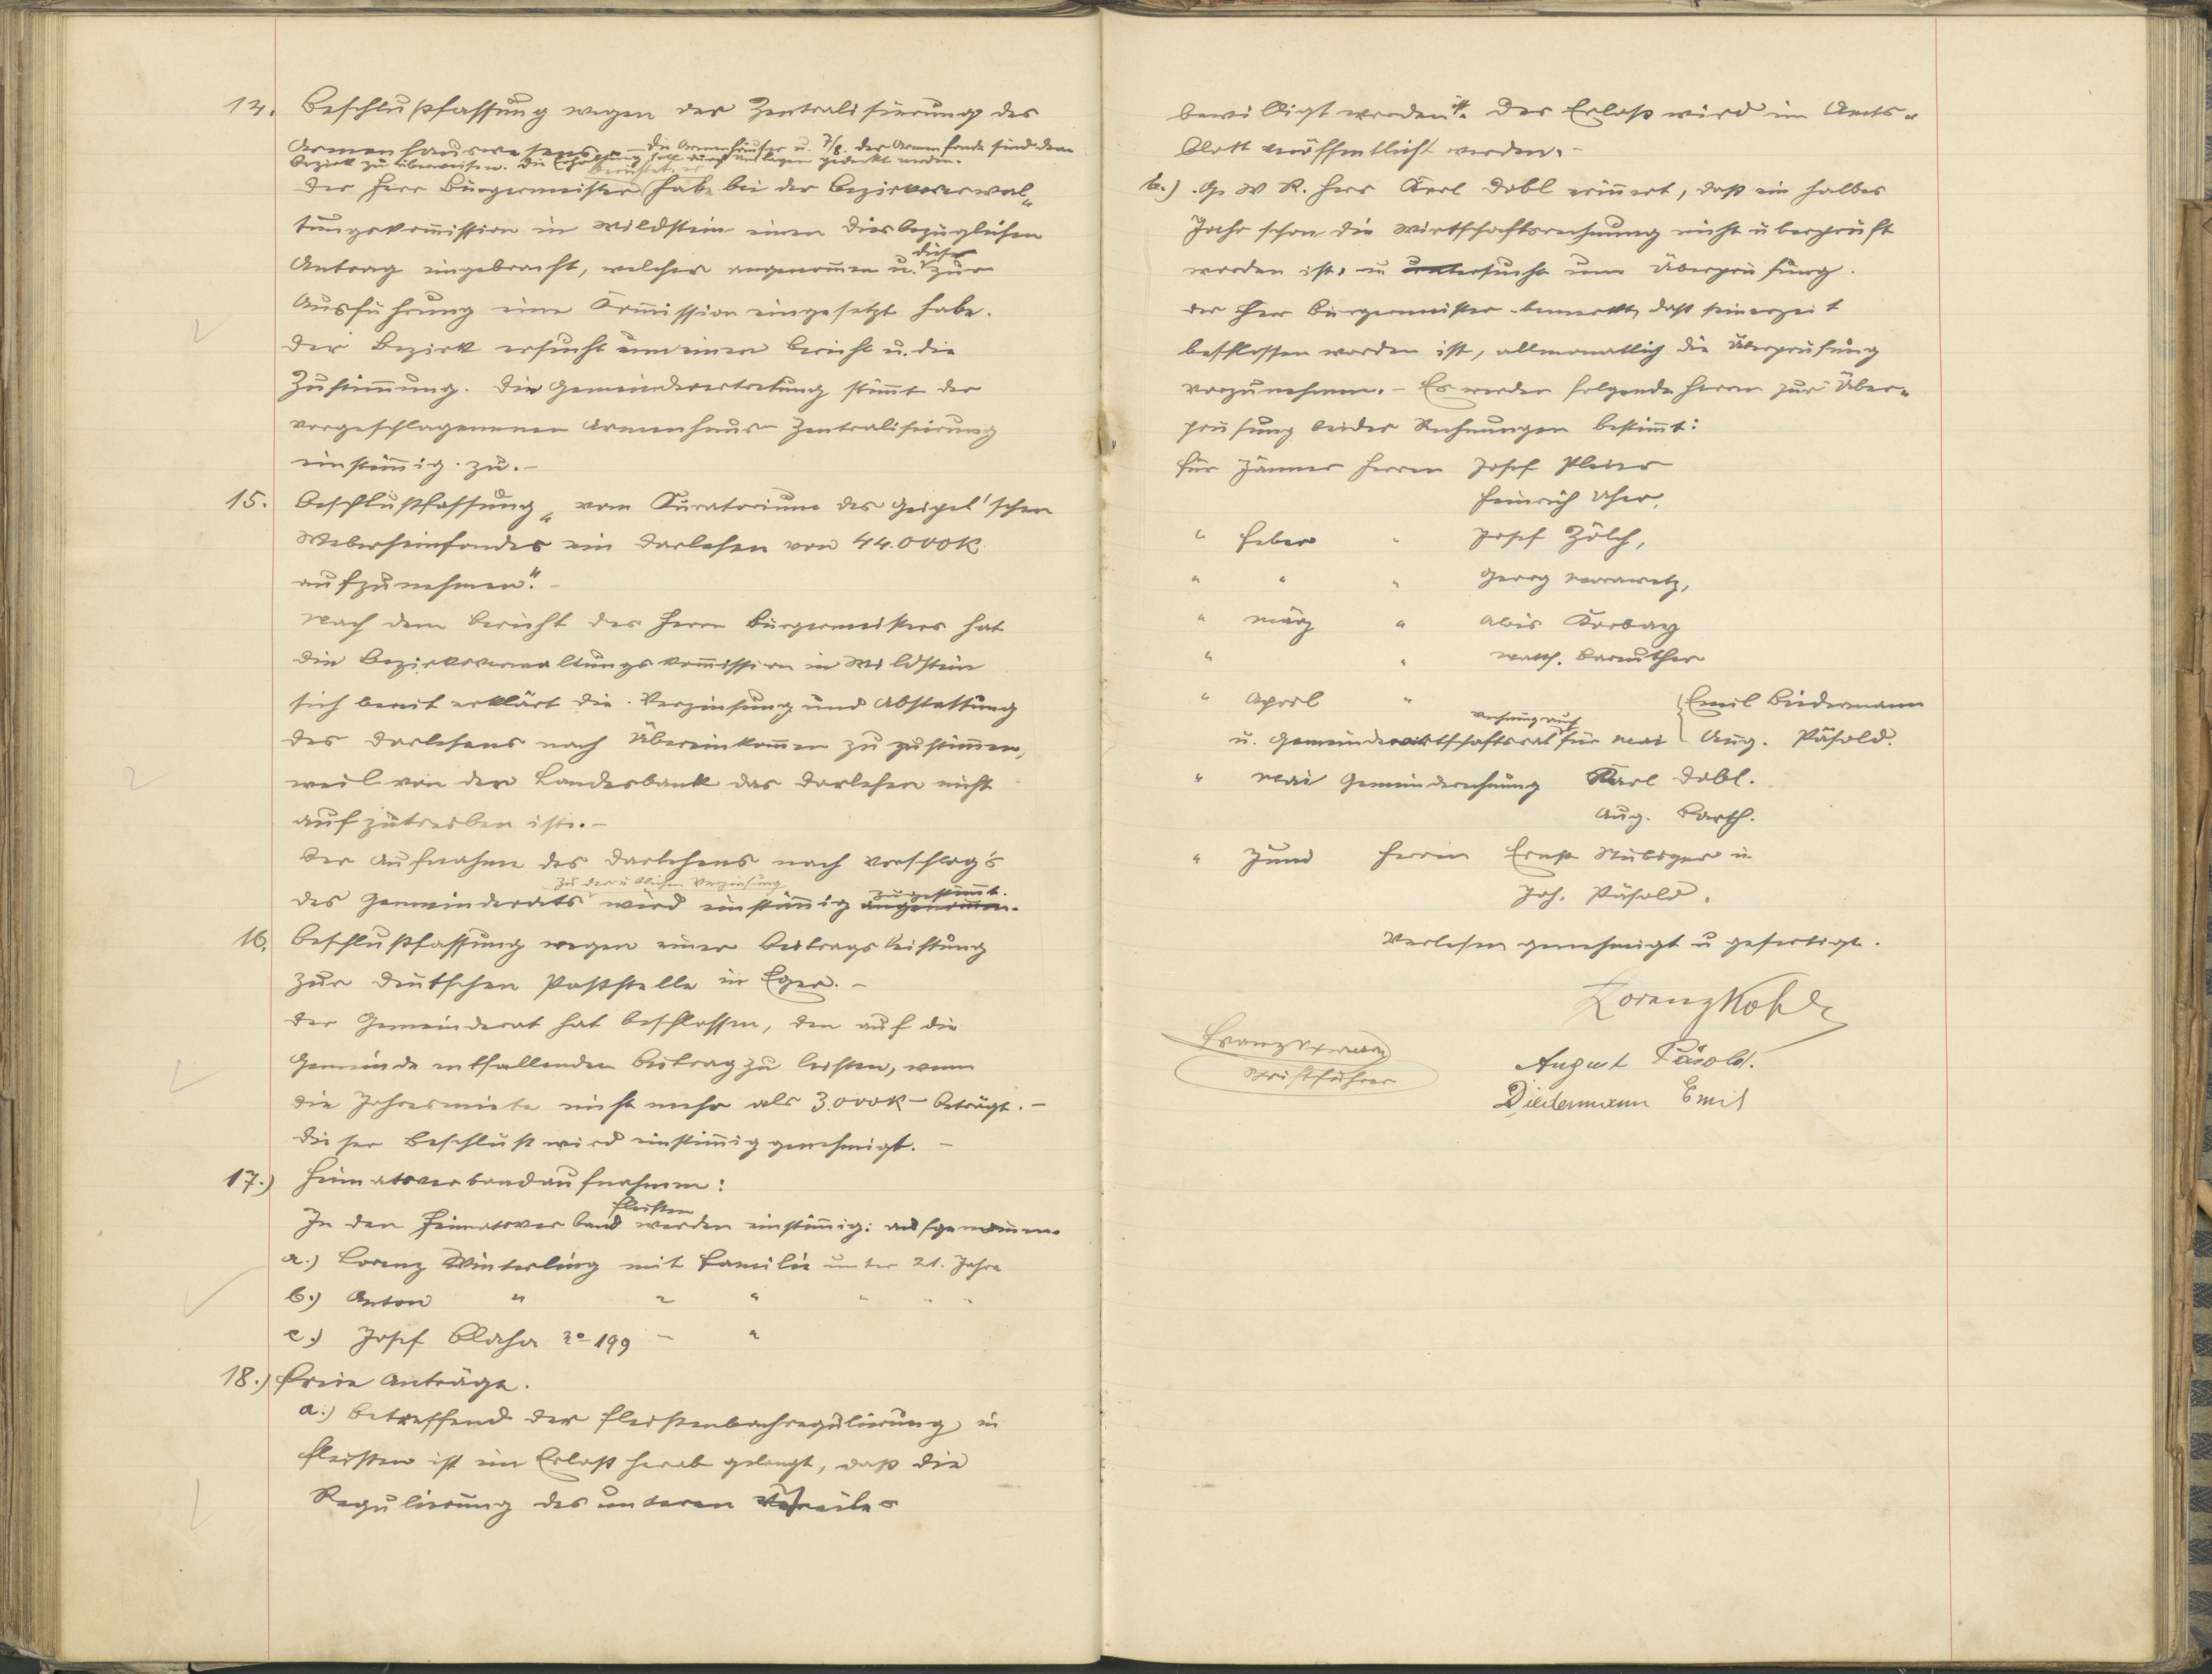 14. Beschlußfassung wegen der Zentralisierung des
Armenhauswesens. – Die Armenhäuser u. 7/8. der Armenfonde sind dem
Bezirk zu überweisen. Die Erhaltung soll durch Umlagen gedeckt werden.
berichtet, er
Der Herr Bürgermeister habe bei der Bezirksverwal„
tungskommission in Wildstein einen diesbezüglichen
dieser
Antrag eingebracht, welcher angenommen u. zur
Ausführung eine Kommission eingesetzt habe.
Der Bezirk ersucht um einen Bericht u. die
Zustimmung. Die Gemeindevertretung stimmt der
vorgeschlagenen Armenhaus Zentralisierung
einstimmig zu. –
15. Beschlußfassung „vom Kuratorium des Geipel'schen
Weberheimfondes ein Darlehen von 44.000K
aufzunehmen“. –
Nach dem Bericht des Herrn Bürgermeisters hat
die Bezirksverwaltungskommission in Wildstein
sich bereit erklärt die Verzinsung und Abstattung
des Darlehens nach Übereinkommen zu zustimmen,
weil von der Landesbank das Darlehen nicht
aufzutreiben ist. –
Der Aufnahme des Darlehens nach Vorschlag's
zu der üblichen Verzinsung zugestimmt.
des Gemeinderats wird einstimmig angenommen.
16. Beschlußfassung wegen einer Beitragsleistung
zur Deutschen Paßstelle in Eger. –
Der Gemeinderat hat beschlossen, den auf die
Gemeinde entfallenden Beitrag zu leisten, wenn
die Jahresmiete nicht mehr als 3.000K – beträgt. –
Dieser Beschluß wird einstimmig genehmigt. –
17.) Heimatsverbandaufnahmen:
Fleißen
In den Heimatsverband werden einstimmig: aufgenommen.
a.) Lorenz Winterling mit Familie unter 21. Jahre
b.) Anton " " " " " "
c.) Josef Blaha No 199 – "
18.) Freie Anträge.
a.) Betreffend der Fleißenbachregulierung in
Fleißen ist ein Erlaß herab gelangt, daß die
Regulierung des unteren Teiles
bewilligt worden ist. Der Erlaß wird im Amts„
blatt veröffentlicht werden. –
b.) G. W. R. Herr Karl Dobl erinnert, daß ein halbes
Jahr schon die Wirtschaftsrechnung nicht überprüft
worden ist, u ersucht um Überprüfung.
Der Herr Bürgermeister bemerkt, daß seinerzeit
beschlossen worden ist, allmonatlich die Überprüfung
vorzunehmen. – Es werden folgende Herren zur Über„
prüfung beider Rechnungen bestimmt:
für Jänner Herren Josef Pleier
Heinrich Uher,
" Feber " Josef Zölch,
" " " Georg Morawetz,
" März " Alois Korbay
" " Math. Bareuther
" April " Emil Biedermann
rechnung auch
u. Gemeindewirtschaftsrat für Mai Aug. Päsold.
" Mai Gemeinderechnung Karl Dobl.
Aug. Barth.
" Juni Herren Ernst Stübiger u
Joh. Päsold.
Verlesen genehmigt u gefertigt.
Lorenz
Franz
Schriftführer
August Päsold.
Biedermann Emil